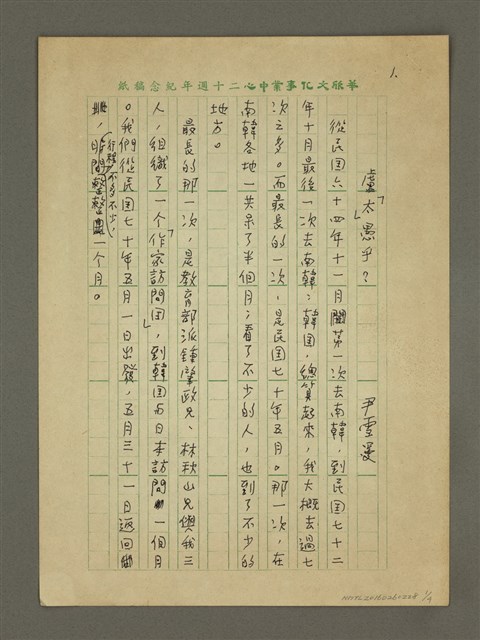 1.
華欣文化事業中心二十週年紀念稿紙
盧「太愚」乎？　尹雪曼
從民國六十四年十一月第一次去南韓，到民國七十二
年十月最後一次去南韓；韓國，總算起來，我大概去過七
次之多。而最長的一次，是民國七十年五月。那一次，在
南韓各地一共呆了半個月；看了不少的人，也到了不少的
地方。
最長的那一次，是教育部派鍾肇政兄、林秋山兄與我三
人，組織了一個「作家訪問團」，到韓國與日本訪問一個月
。我們從民國七十年五月一日出發，五月三十一日返回
，行程不多不少，
時間整整一個月。
NMTL20150260228 1/4